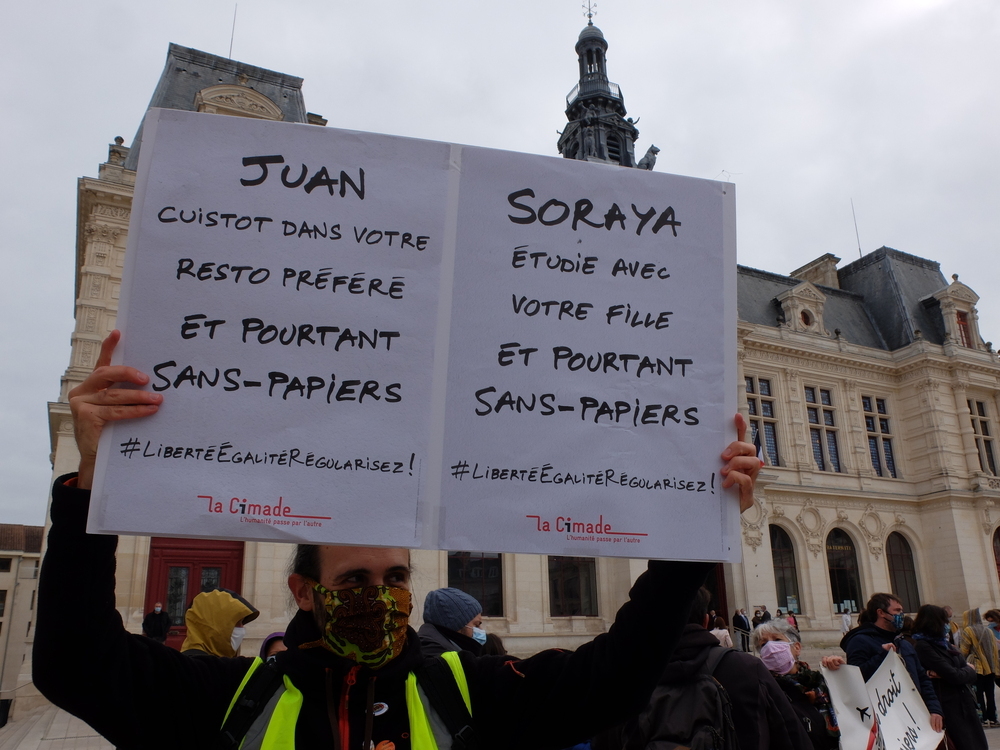 JUAN
CUISTOT DANS VOTRE
RESTO PRÉFÉRÉ
ET POURTANT
SANS-PAPIERS
#LIBERTÉÉGALITÉRÉGULARISEZ!
la Cimade
L'humanité passe par l'autre
SORAYA
ÉTUDIE AVEC
VOTRE FILLE
ET POURTANT
SANS-PAPIERS
#LIBERTÉÉGALITÉRÉGULARISEZ!
la Cimade
L'humanité passe par l'autre
droit
!